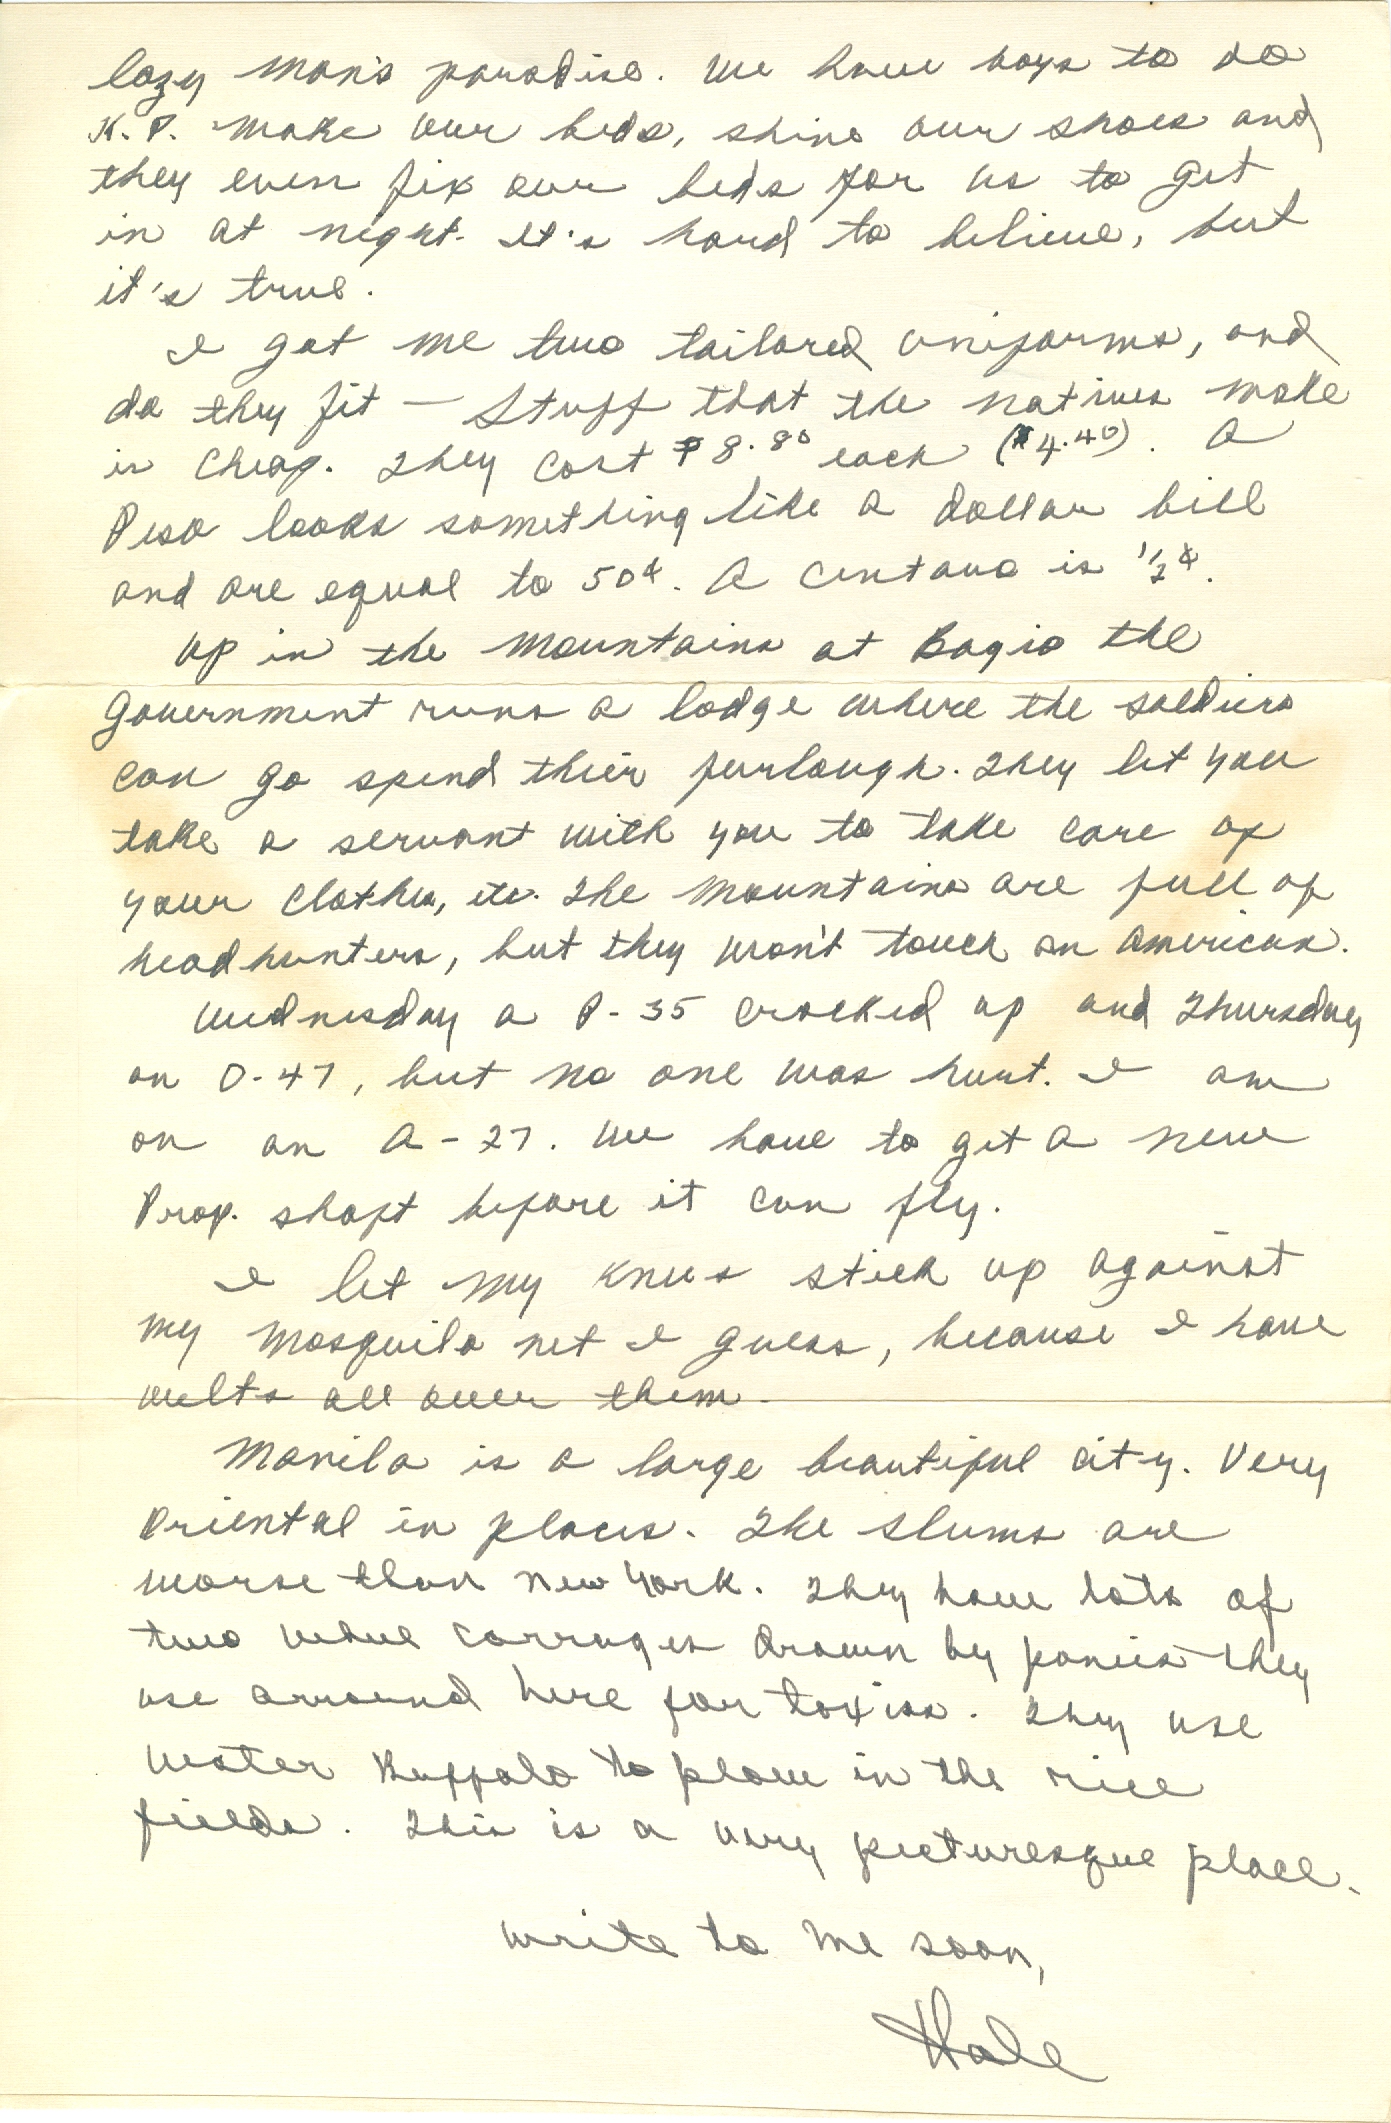 lazy man's paradise. We have boys to do
K.P. make our beds, shine our shoes and
they even fix our beds for us to get
in at night. It's hard to believe, but
it's true.
I got me two tailored uniforms, and
do they fit — Stuff that the natives make
is cheap. They cost ₱8.80 each ($4.40). A
Peso looks something like a dollar bill
and are equal to 50¢. A centavo is 1/2¢.
Up in the mountains at Bagio the
Government runs a lodge where the soldiers
can go spend thier furlough. They let you
take a servant with you to take care of
your clothes, etc. The mountains are full of
headhunters, but they won't touch an American.
Wednesday a P-35 cracked up and Thursday
an O-47, but no one was hurt. I am
on an A-27. We have to get a new
Prop. shaft before it can fly.
I let my knees stick up against
my mosquito net I guess, because I have
welts all over them.
Manila is a large beautiful city. Very
Oriental in places. The slums are
worse than New York. They have lots of
two carrages drawn by ponies they
use arround here for taxiss. They use
water Buffalo to plow in the rice
fields. This is a very picturesque place.
Write to me soon,
Hale